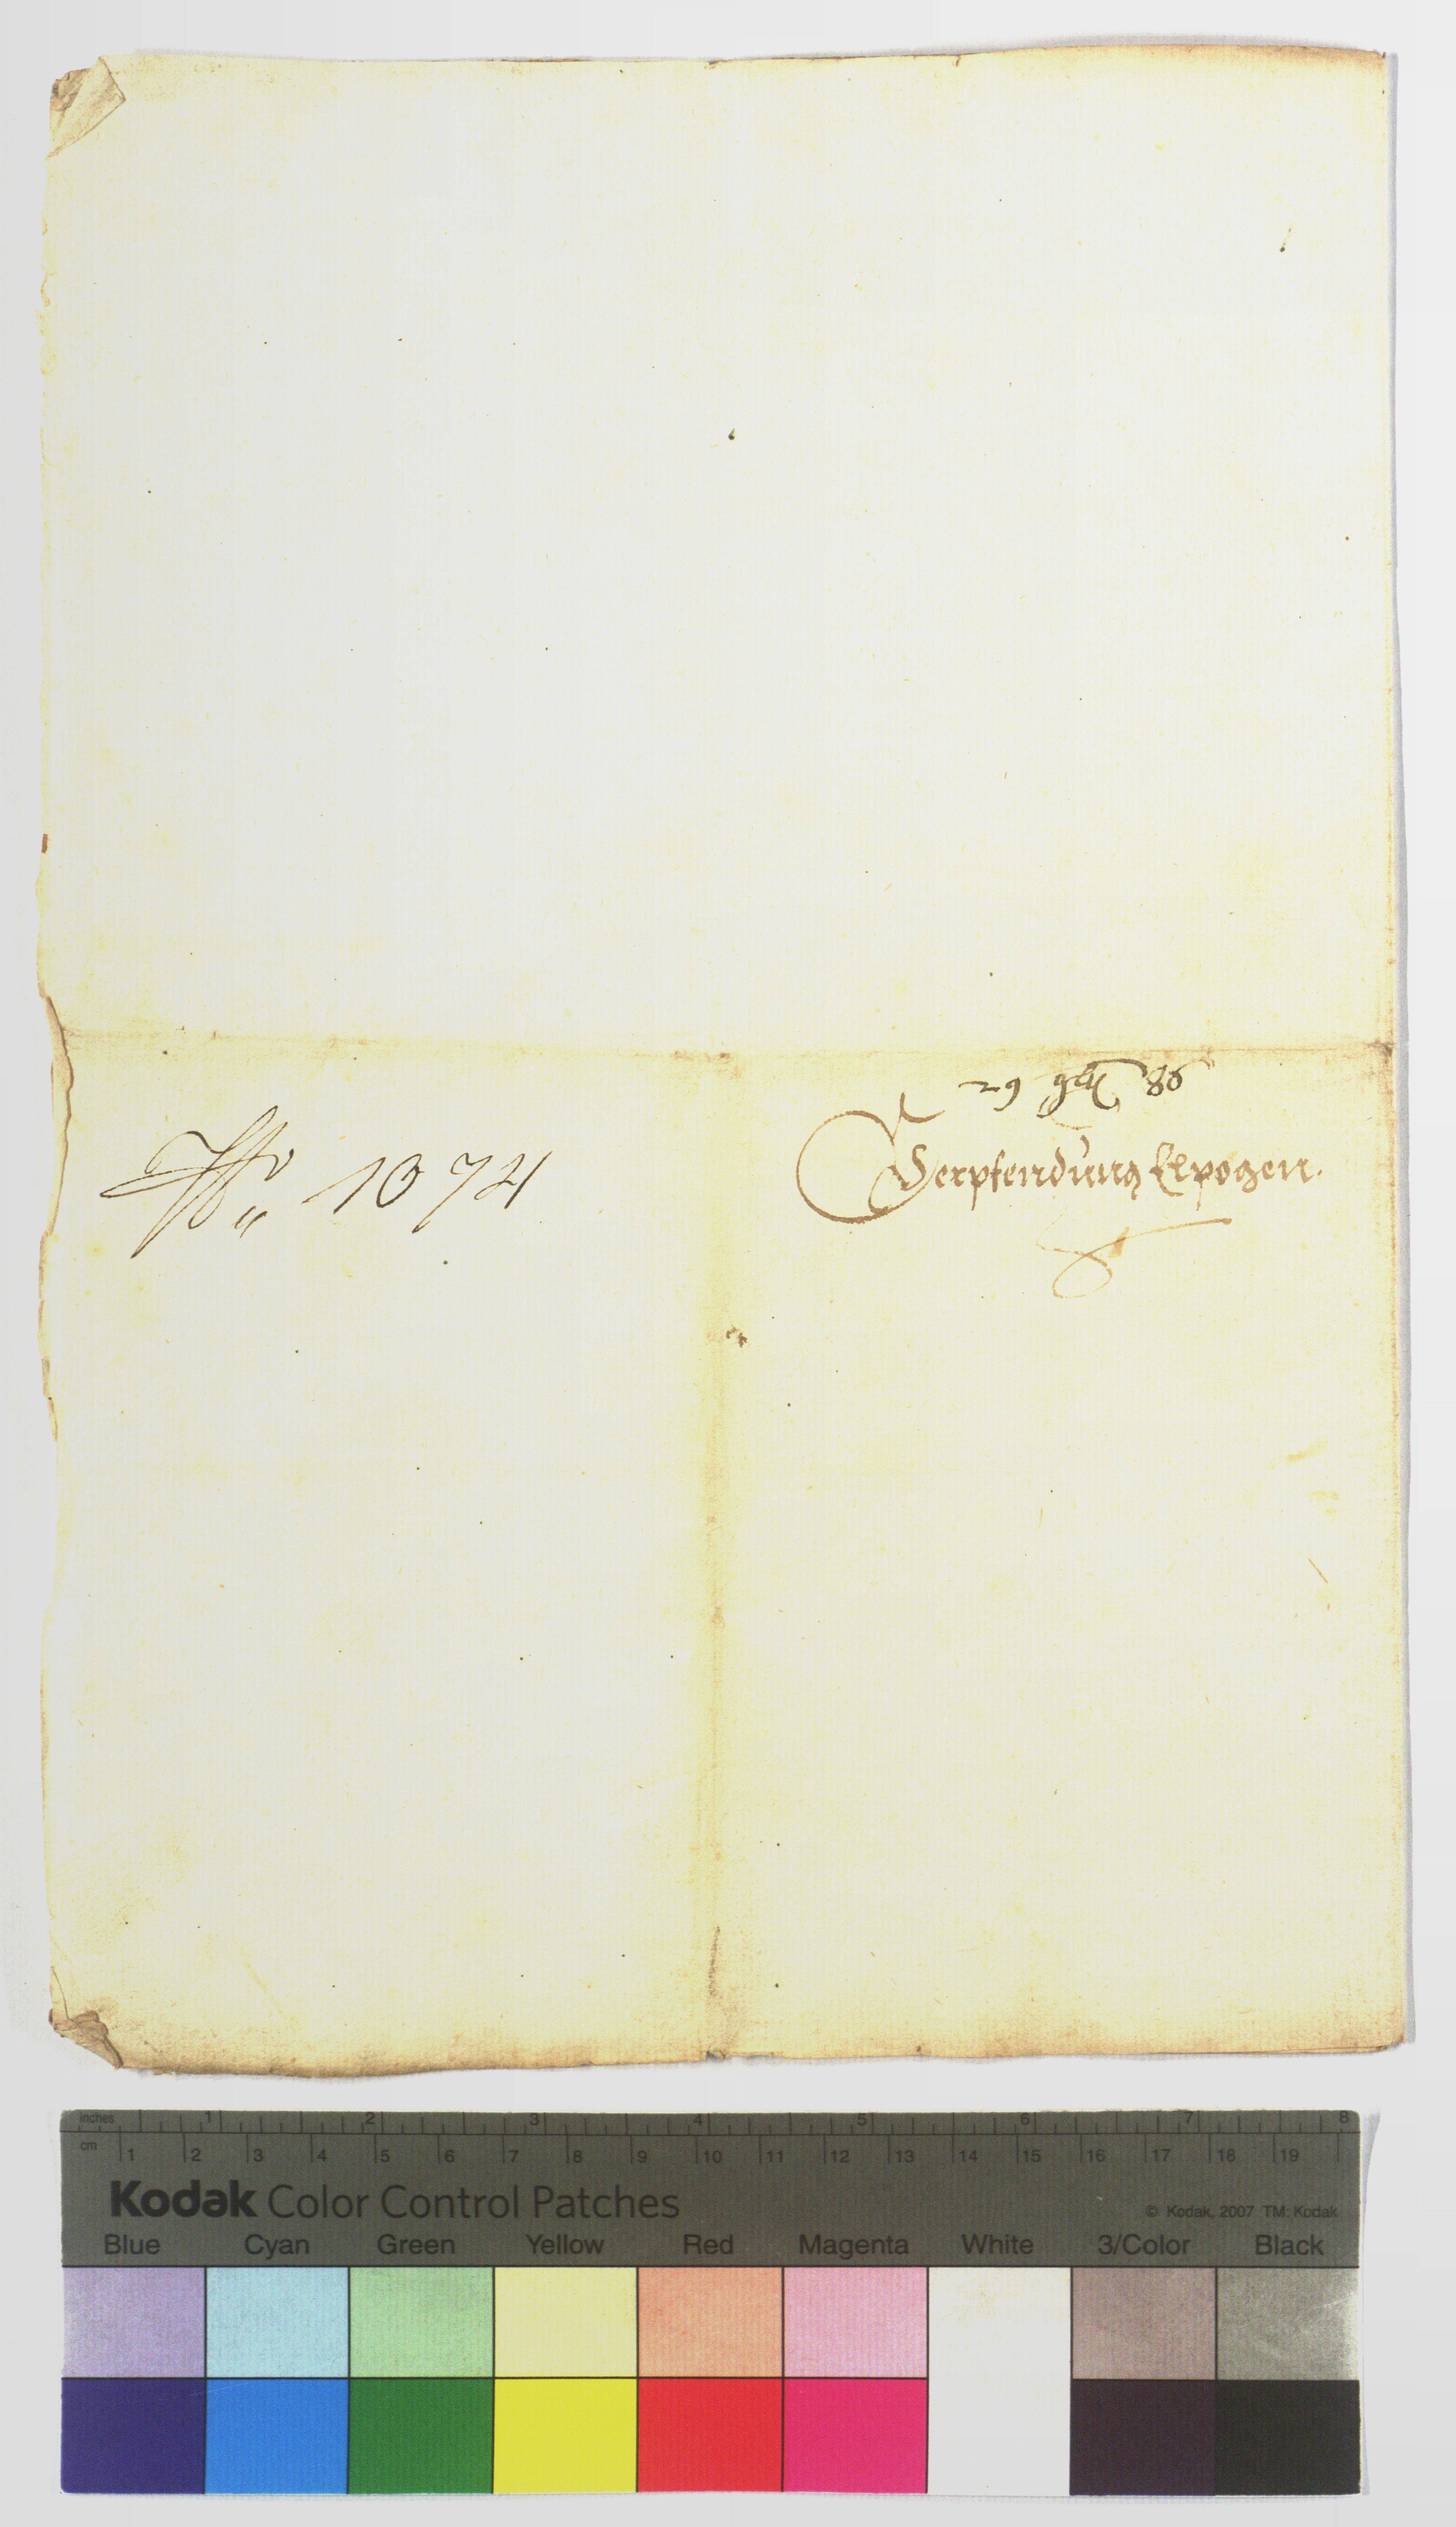 29 86
Verpfendung Elpogen.
No 1074
inches 1 2 3 4 5 6 7 8
cm 1 2 3 4 5 6 7 8 9 10 11 12 13 14 15 16 17 18 19
Kodak Color Control Patches © Kodak, 2007 TM: Kodak
Blue Cyan Green Yellow Red Magenta White 3/Color Black